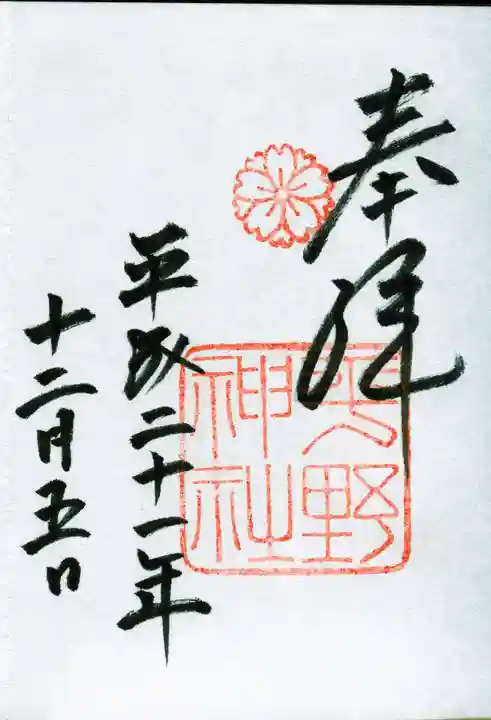 奉拝
野
神社
平成二十一年
十二月五日